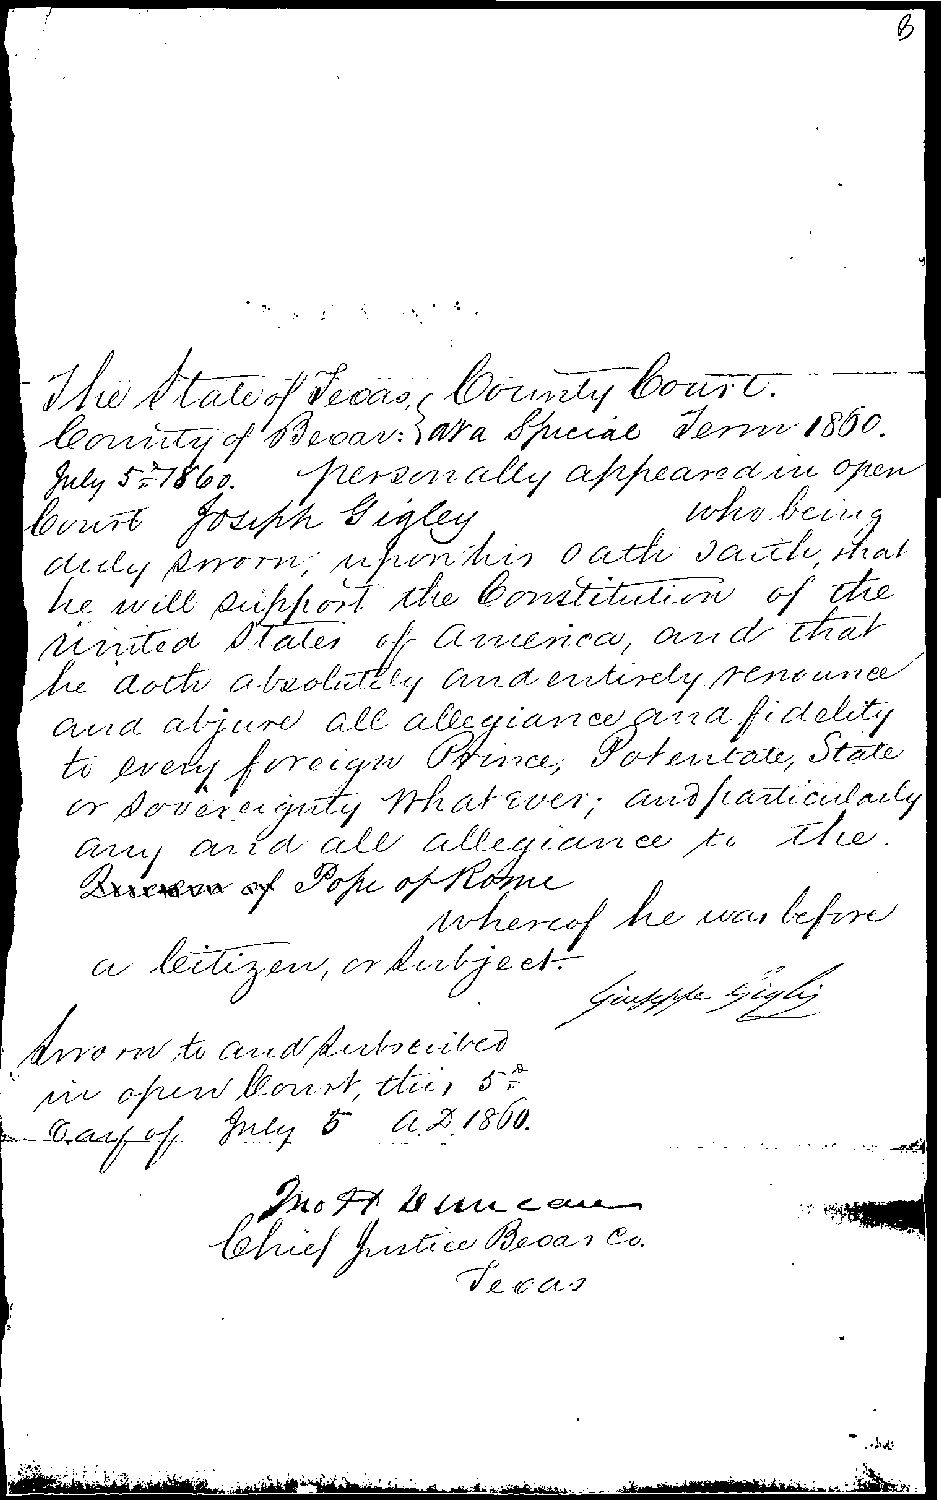 8
The State of Texas, { County Court.
County of Bexar: } at a Special Term 1860.
July 5th 1860. personally appeared in open
Court Joseph Gigley who being
duly sworn, upon his oath saith, that
he will support the Constitution of the
United States of America, and that
he doth absolutely and entirely renounce
and abjure all allegiance and fidelity
to every foreign Prince, Potentate, State
or Sovereignty whatever; and particularly
any and all allegiance to the
Queen of Pope of Rome
whereof he was before
a Citizen, or Subject.
Giuseppe Gigli
Sworn to and Subscribed
in open Court, this 5th
Day of July 5 A.D. 1860.
Jno H Duncan
Chief Justice Bexar Co.
Texas